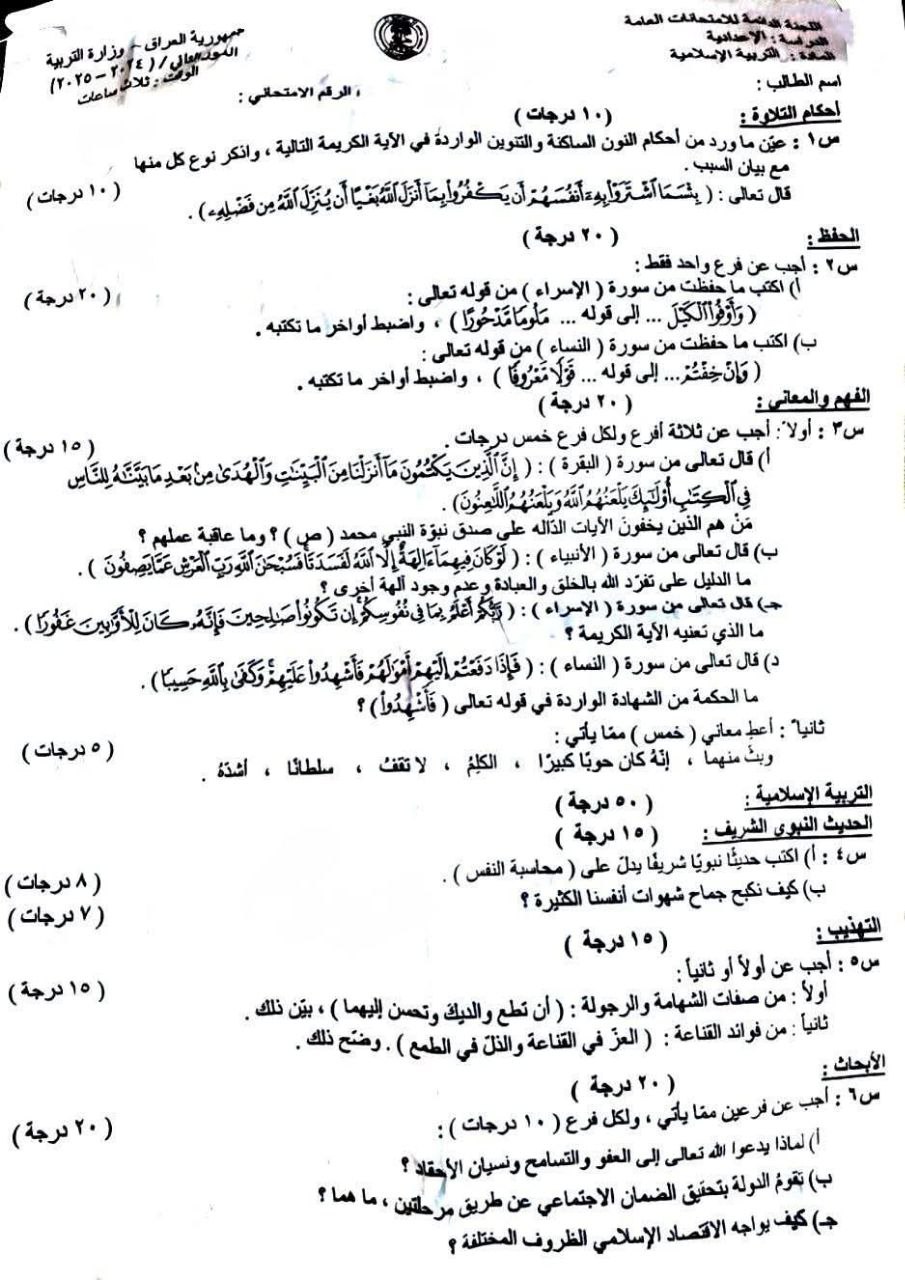 اللجنة الدائمة للامتحانات العامة
الدراسة : الإعدادية
المادة : التربية الإسلامية
جمهورية العراق - وزارة التربية
/ (٢٠٢٤ - ٢٠٢٥)
الوقت : ثلاث ساعات
اسم الطالب :
الرقم الامتحاني :
أحكام التلاوة : (١٠ درجات)
س١ : عيّن ما ورد من أحكام النون الساكنة والتنوين الواردة في الآية الكريمة التالية ، واذكر نوع كل منها
مع بيان السبب . (١٠ درجات)
قال تعالى : ( بِئْسَمَا اشْتَرَوْا بِهِ أَنفُسَهُمْ أَن يَكْفُرُوا بِمَا أَنزَلَ اللَّهُ بَغْيًا أَن يُنَزِّلَ اللَّهُ مِن فَضْلِهِ ) .
الحفظ : (٢٠ درجة)
س٢ : أجب عن فرع واحد فقط : (٢٠ درجة)
أ) اكتب ما حفظت من سورة ( الإسراء ) من قوله تعالى :
( وَأَوْفُوا الْكَيْلَ ... إلى قوله ... مَلُومًا مَّدْحُورًا ) ، واضبط أواخر ما تكتبه .
ب) اكتب ما حفظت من سورة ( النساء ) من قوله تعالى :
( وَإِنْ خِفْتُمْ ... إلى قوله ... قَوْلًا مَعْرُوفًا ) ، واضبط أواخر ما تكتبه .
الفهم والمعاني : (٢٠ درجة)
س٣ : أولاً : أجب عن ثلاثة أفرع ولكل فرع خمس درجات . (١٥ درجة)
أ) قال تعالى من سورة ( البقرة ) : ( إِنَّ الَّذِينَ يَكْتُمُونَ مَا أَنزَلْنَا مِنَ الْبَيِّنَاتِ وَالْهُدَى مِنْ بَعْدِ مَا بَيَّنَّاهُ لِلنَّاسِ
فِي الْكِتَابِ أُولَٰئِكَ يَلْعَنُهُمُ اللَّهُ وَيَلْعَنُهُمُ اللَّاعِنُونَ ) .
مَنْ هم الذين يخفون الآيات الدّاله على صدق نبوّة النبي محمد ( ص ) ؟ وما عاقبة عملهم ؟
ب) قال تعالى من سورة ( الأنبياء ) : ( لَوْ كَانَ فِيهِمَا آلِهَةٌ إِلَّا اللَّهُ لَفَسَدَتَا فَسُبْحَانَ اللَّهِ رَبِّ الْعَرْشِ عَمَّا يَصِفُونَ ) .
ما الدليل على تفرّد الله بالخلق والعبادة وعدم وجود آلهة أخرى ؟
جـ) قال تعالى من سورة ( الإسراء ) : ( رَبُّكُمْ أَعْلَمُ بِمَا فِي نُفُوسِكُمْ إِن تَكُونُوا صَالِحِينَ فَإِنَّهُ كَانَ لِلْأَوَّابِينَ غَفُورًا ) .
ما الذي تعنيه الآية الكريمة ؟
د) قال تعالى من سورة ( النساء ) : ( فَإِذَا دَفَعْتُمْ إِلَيْهِمْ أَمْوَالَهُمْ فَأَشْهِدُوا عَلَيْهِمْ وَكَفَىٰ بِاللَّهِ حَسِيبًا ) .
ما الحكمة من الشهادة الواردة في قوله تعالى ( فَأَشْهِدُوا ) ؟
ثانياً : أعطِ معاني ( خمس ) ممّا يأتي : (٥ درجات)
وبثّ منهما ، إنّهُ كان حوبًا كبيرًا ، الكَلِمُ ، لا تقفُ ، سلطانًا ، أشدّهُ .
التربية الإسلامية : (٥٠ درجة)
الحديث النبوي الشريف : (١٥ درجة)
س٤ : أ) اكتب حديثًا نبويًا شريفًا يدلّ على ( محاسبة النفس ) . (٨ درجات)
ب) كيف نكبح جماح شهوات أنفسنا الكثيرة ؟ (٧ درجات)
التهذيب : (١٥ درجة)
س٥ : أجب عن أولاً أو ثانياً : (١٥ درجة)
أولاً : من صفات الشهامة والرجولة : ( أن تطع والديك وتحسن إليهما ) ، بيّن ذلك .
ثانياً : من فوائد القناعة : ( العزّ في القناعة والذلّ في الطمع ) . وضّح ذلك .
الأبحاث : (٢٠ درجة)
س٦ : أجب عن فرعين ممّا يأتي ، ولكل فرع (١٠ درجات) : (٢٠ درجة)
أ) لماذا يدعوا الله تعالى إلى العفو والتسامح ونسيان الأحقاد ؟
ب) تقومُ الدولة بتحقيق الضمان الاجتماعي عن طريق مرحلتين ، ما هما ؟
جـ) كيف يواجه الاقتصاد الإسلامي الظروف المختلفة ؟